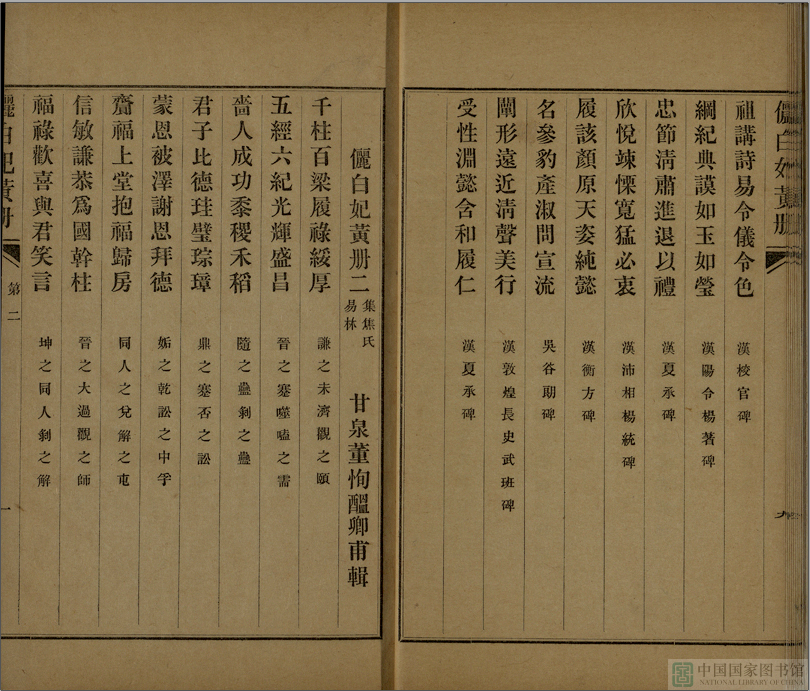 儷白妃黃册
祖講詩易令儀令色 漢校官碑
綱紀典謨如玉如瑩 漢陽令楊著碑
忠節淸肅進退以禮 漢夏承碑
欣悅竦慄寬猛必衷 漢沛相楊統碑
履該顏原天姿純懿 漢衡方碑
名參豹產淑問宣流 吳谷朗碑
闡形遠近淸聲美行 漢敦煌長史武班碑
受性淵懿含和履仁 漢夏承碑
儷白妃黃册二 集焦氏易林 甘泉董恂醞卿甫輯
千柱百梁履祿綏厚 謙之未濟觀之頤
五經六紀光輝盛昌 晉之蹇噬嗑之需
嗇人成功黍稷禾稻 隨之蠱剝之蠱
君子比德珪璧琮璋 鼎之蹇否之訟
蒙恩被澤謝恩拜德 姤之乾訟之中孚
齋福上堂抱福歸房 同人之兌解之屯
信敏謙恭爲國幹柱 晉之大過觀之師
福祿歡喜與君笑言 坤之同人剝之解
儷白妃黃册 第二 一
中国国家图书馆
NATIONAL LIBRARY OF CHINA